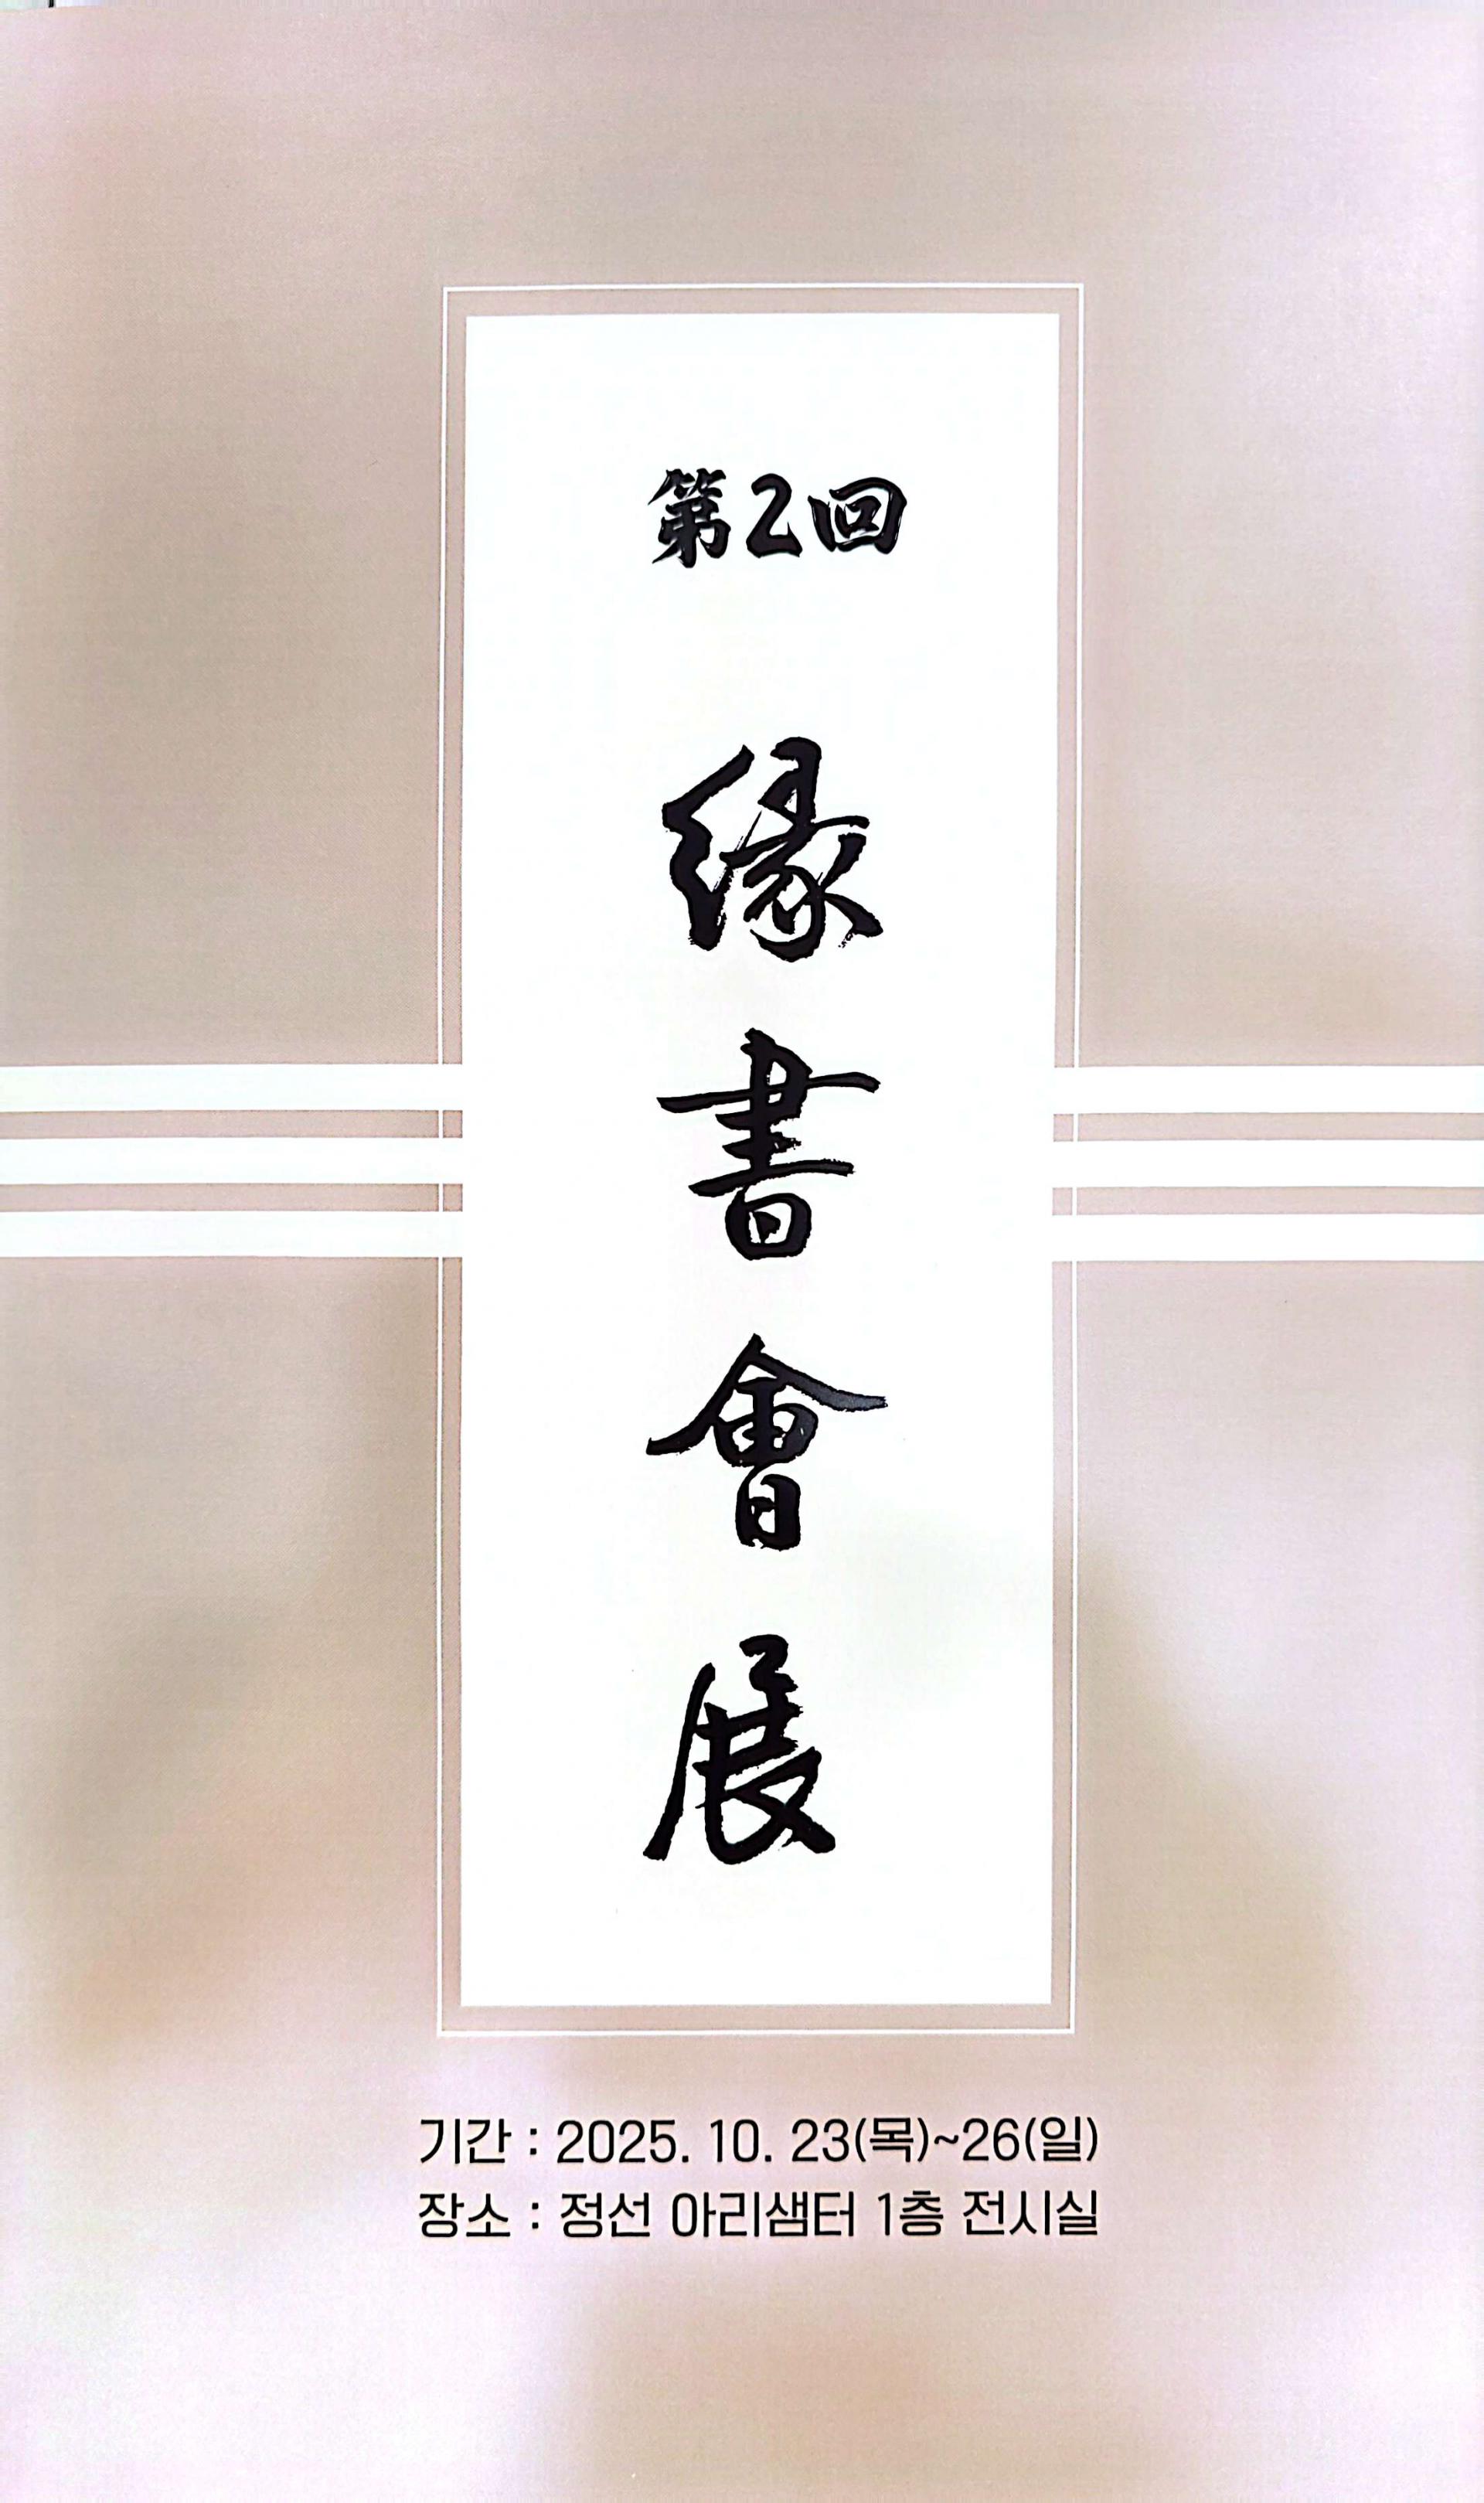 第2回
緣書會展
기간 : 2025. 10. 23(목)~26(일)
장소 : 정선 아리샘터 1층 전시실